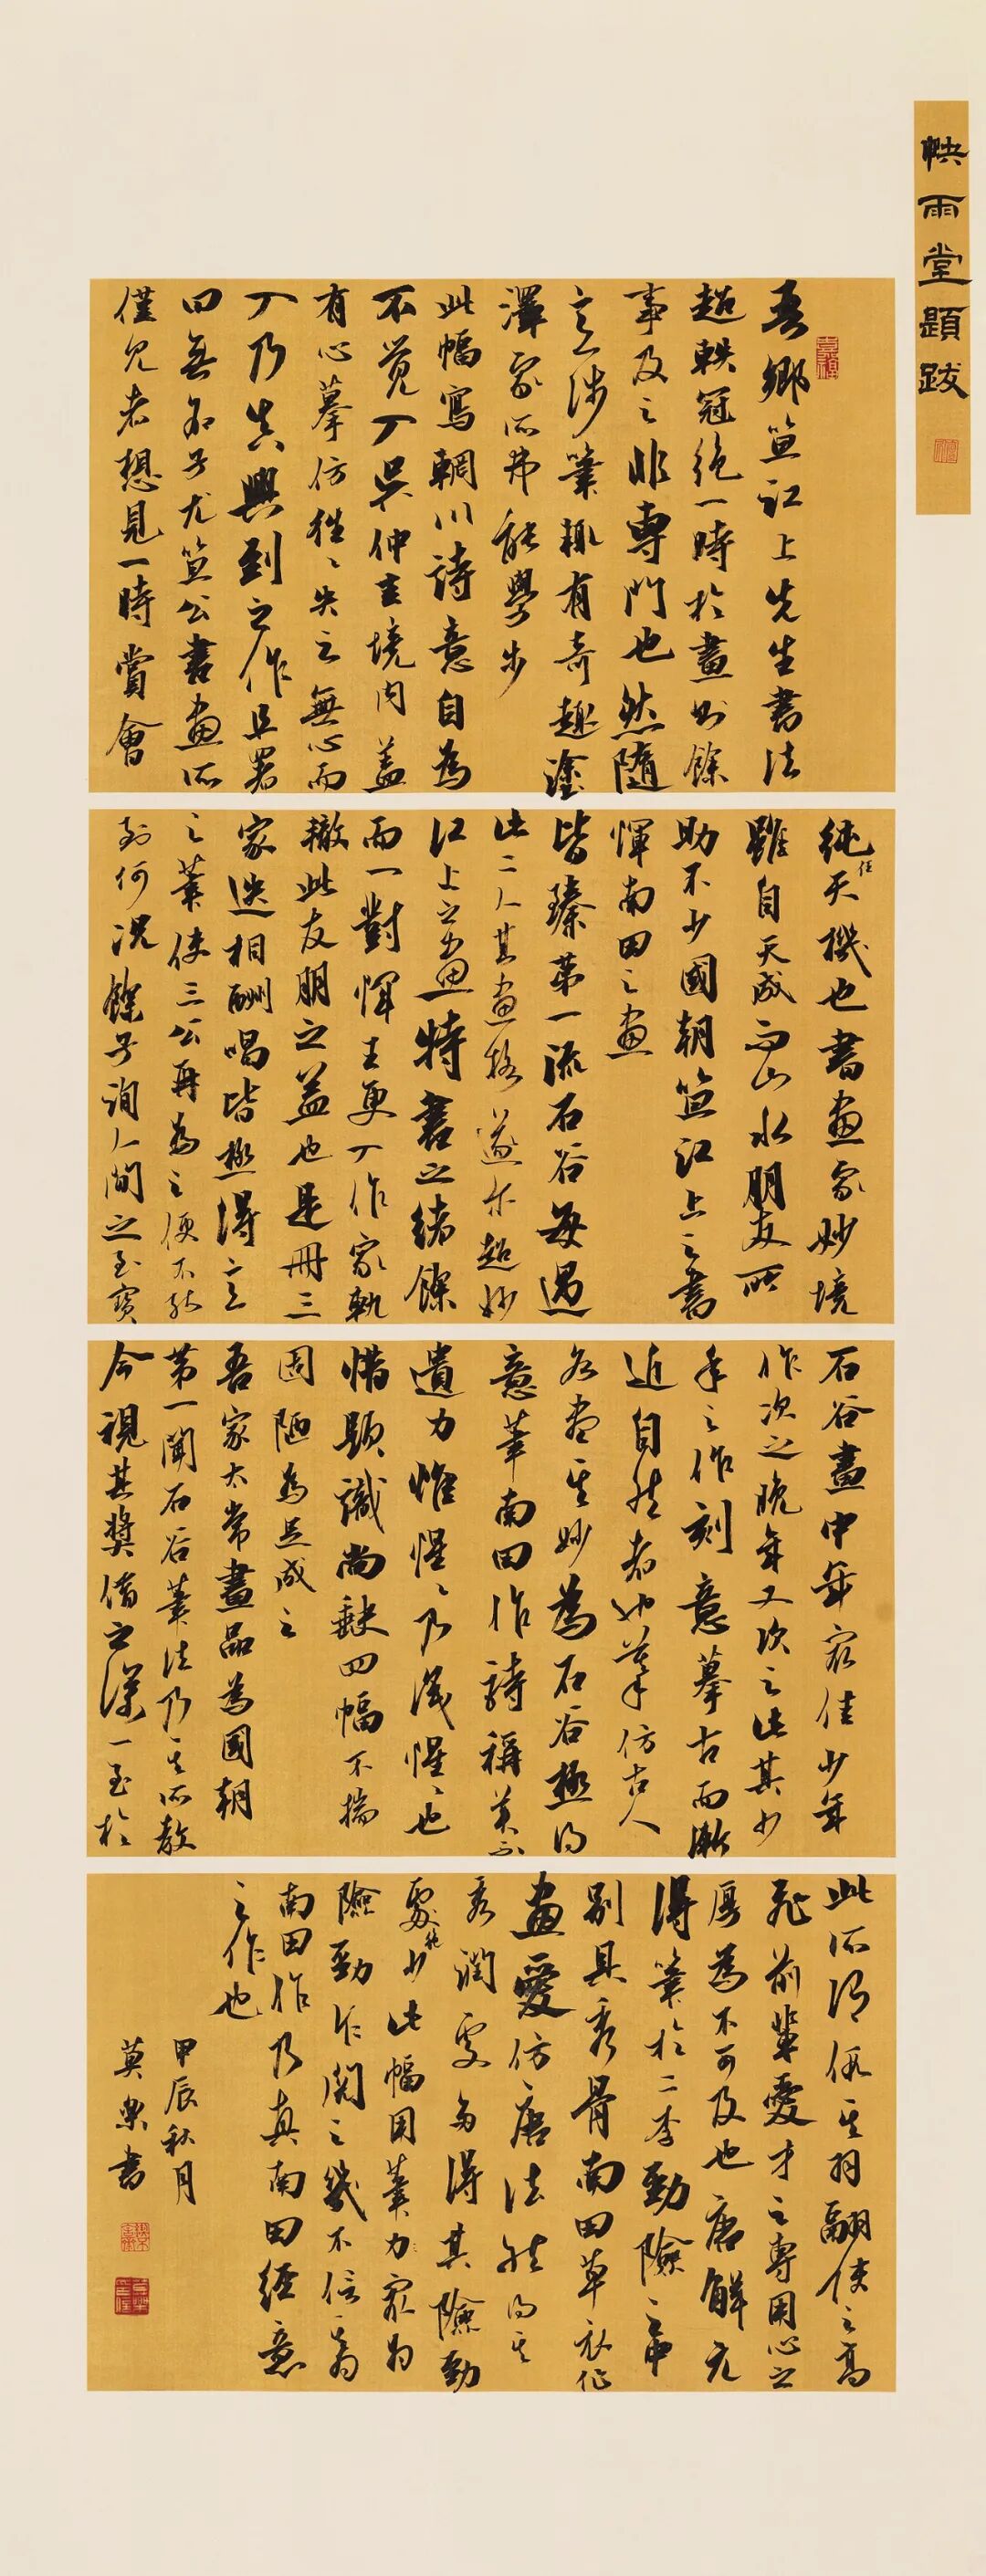 映雨堂題跋
吾鄉笪江上先生書法
超軼冠絕一時於畫則餘
事及之非專門也然隨
意涉筆輒有奇趣塗
澤家所弗能學步
此幅寫輞川詩意自為
不覺入吳仲圭境內蓋
有心摹仿往往失之無心而
入乃真興到之作且署
曰無名子尤笪公書畫所
僅見者想見一時賞會
純任天機也書畫家妙境
雖自天成而山水朋友所
助不少國朝笪江上之書
惲南田之畫
皆臻第一流石谷每遇
此二人其畫格遂亦超妙
江上之畫特書之緒餘
而一對惲王更入作家軌
轍此友朋之益也是冊三
家迭相酬唱皆極得意
之筆使三公再為之便不能
到何況餘子詢人間之至寶
石谷畫中年最佳少年
作次之晚年又次之此其少
年之作刻意摹古而漸
近自然者也摹仿古人
各盡其妙為石谷極得
意筆南田作詩稱美不
遺力惟惺惺乃識惺惺也
惜題識尚缺四幅不揣
固陋為足成之
吾家太常畫品為國朝
第一聞石谷筆法乃其所教
今視其獎借之深一至於
此所謂假其羽翮使之高
飛前輩愛才之專用心之
厚為不可及也唐解元
得筆於二李勁險之中
別具秀骨南田草衣作
畫愛仿唐法然得其
秀潤處多得其險勁
處少此幅用筆力最為
險勁乍閱之幾不信其為
南田作乃真南田經意
之作也
甲辰秋月
莫樂書